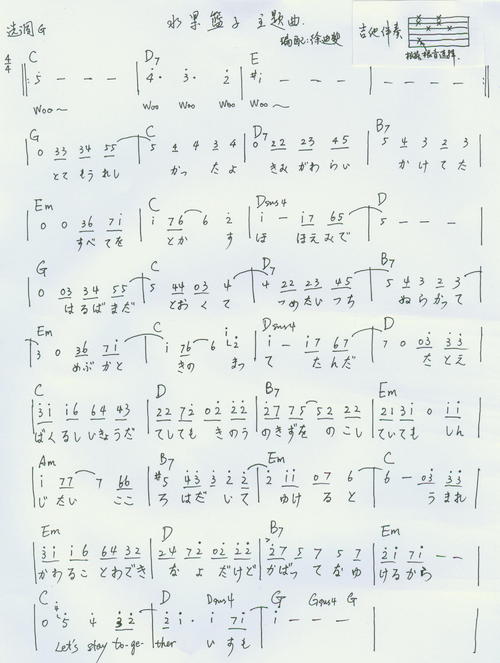 选调G 水果篮子 主题曲. 吉他伴奏
编配:徐
C D7 E
4/4 5 - - - 4· 3· 2 #i - - -
Woo～ Woo Woo Woo Woo～
G C D7 B7
0 33 34 55 5 4 4 3 4 0 22 23 45 5 4 3 2 3
とてもうれし かっ たよ きみがわらい かけてた
Em C Dsus4 D
0 0 36 7i i 76 6 2 i - i7 65 5 - - -
すべてを とか す ほ ほえみで
G C D7 B7
0 03 34 55 5 44 03 4 4 22 23 45 5 4 3 2 3
はるばまだ とおくて つめたいつち ぬらかって
Em C Dsus4 D
3 0 36 7i i 76 6 i2 i - i7 67 7 0 03 33
めぶかと きの まっ て たんだ たとえ
C D B7 Em
3i i6 64 43 22 72 02 22 27 75 52 22 2131 0 ii
ばくるしいきょうだ てしても きのう のきずを のこし ていても しん
Am B7 Em C
i 77 7 66 #5 43 3 2 2 2 ii 07 6 6 - 03 33
じたい ここ ろ はだ いて ゆけると うまれ
Em D B7 Em
3i i6 64 32 24 72 02 22 27 5 7 5 7 2i 7i - -
かわること わでき なよだけど かばってなゆ けるから
C D Dsus4 G Gsus4 G
0 5 4 32 2i· i 7i i - - -
Let's stay to-ge- ther いすも